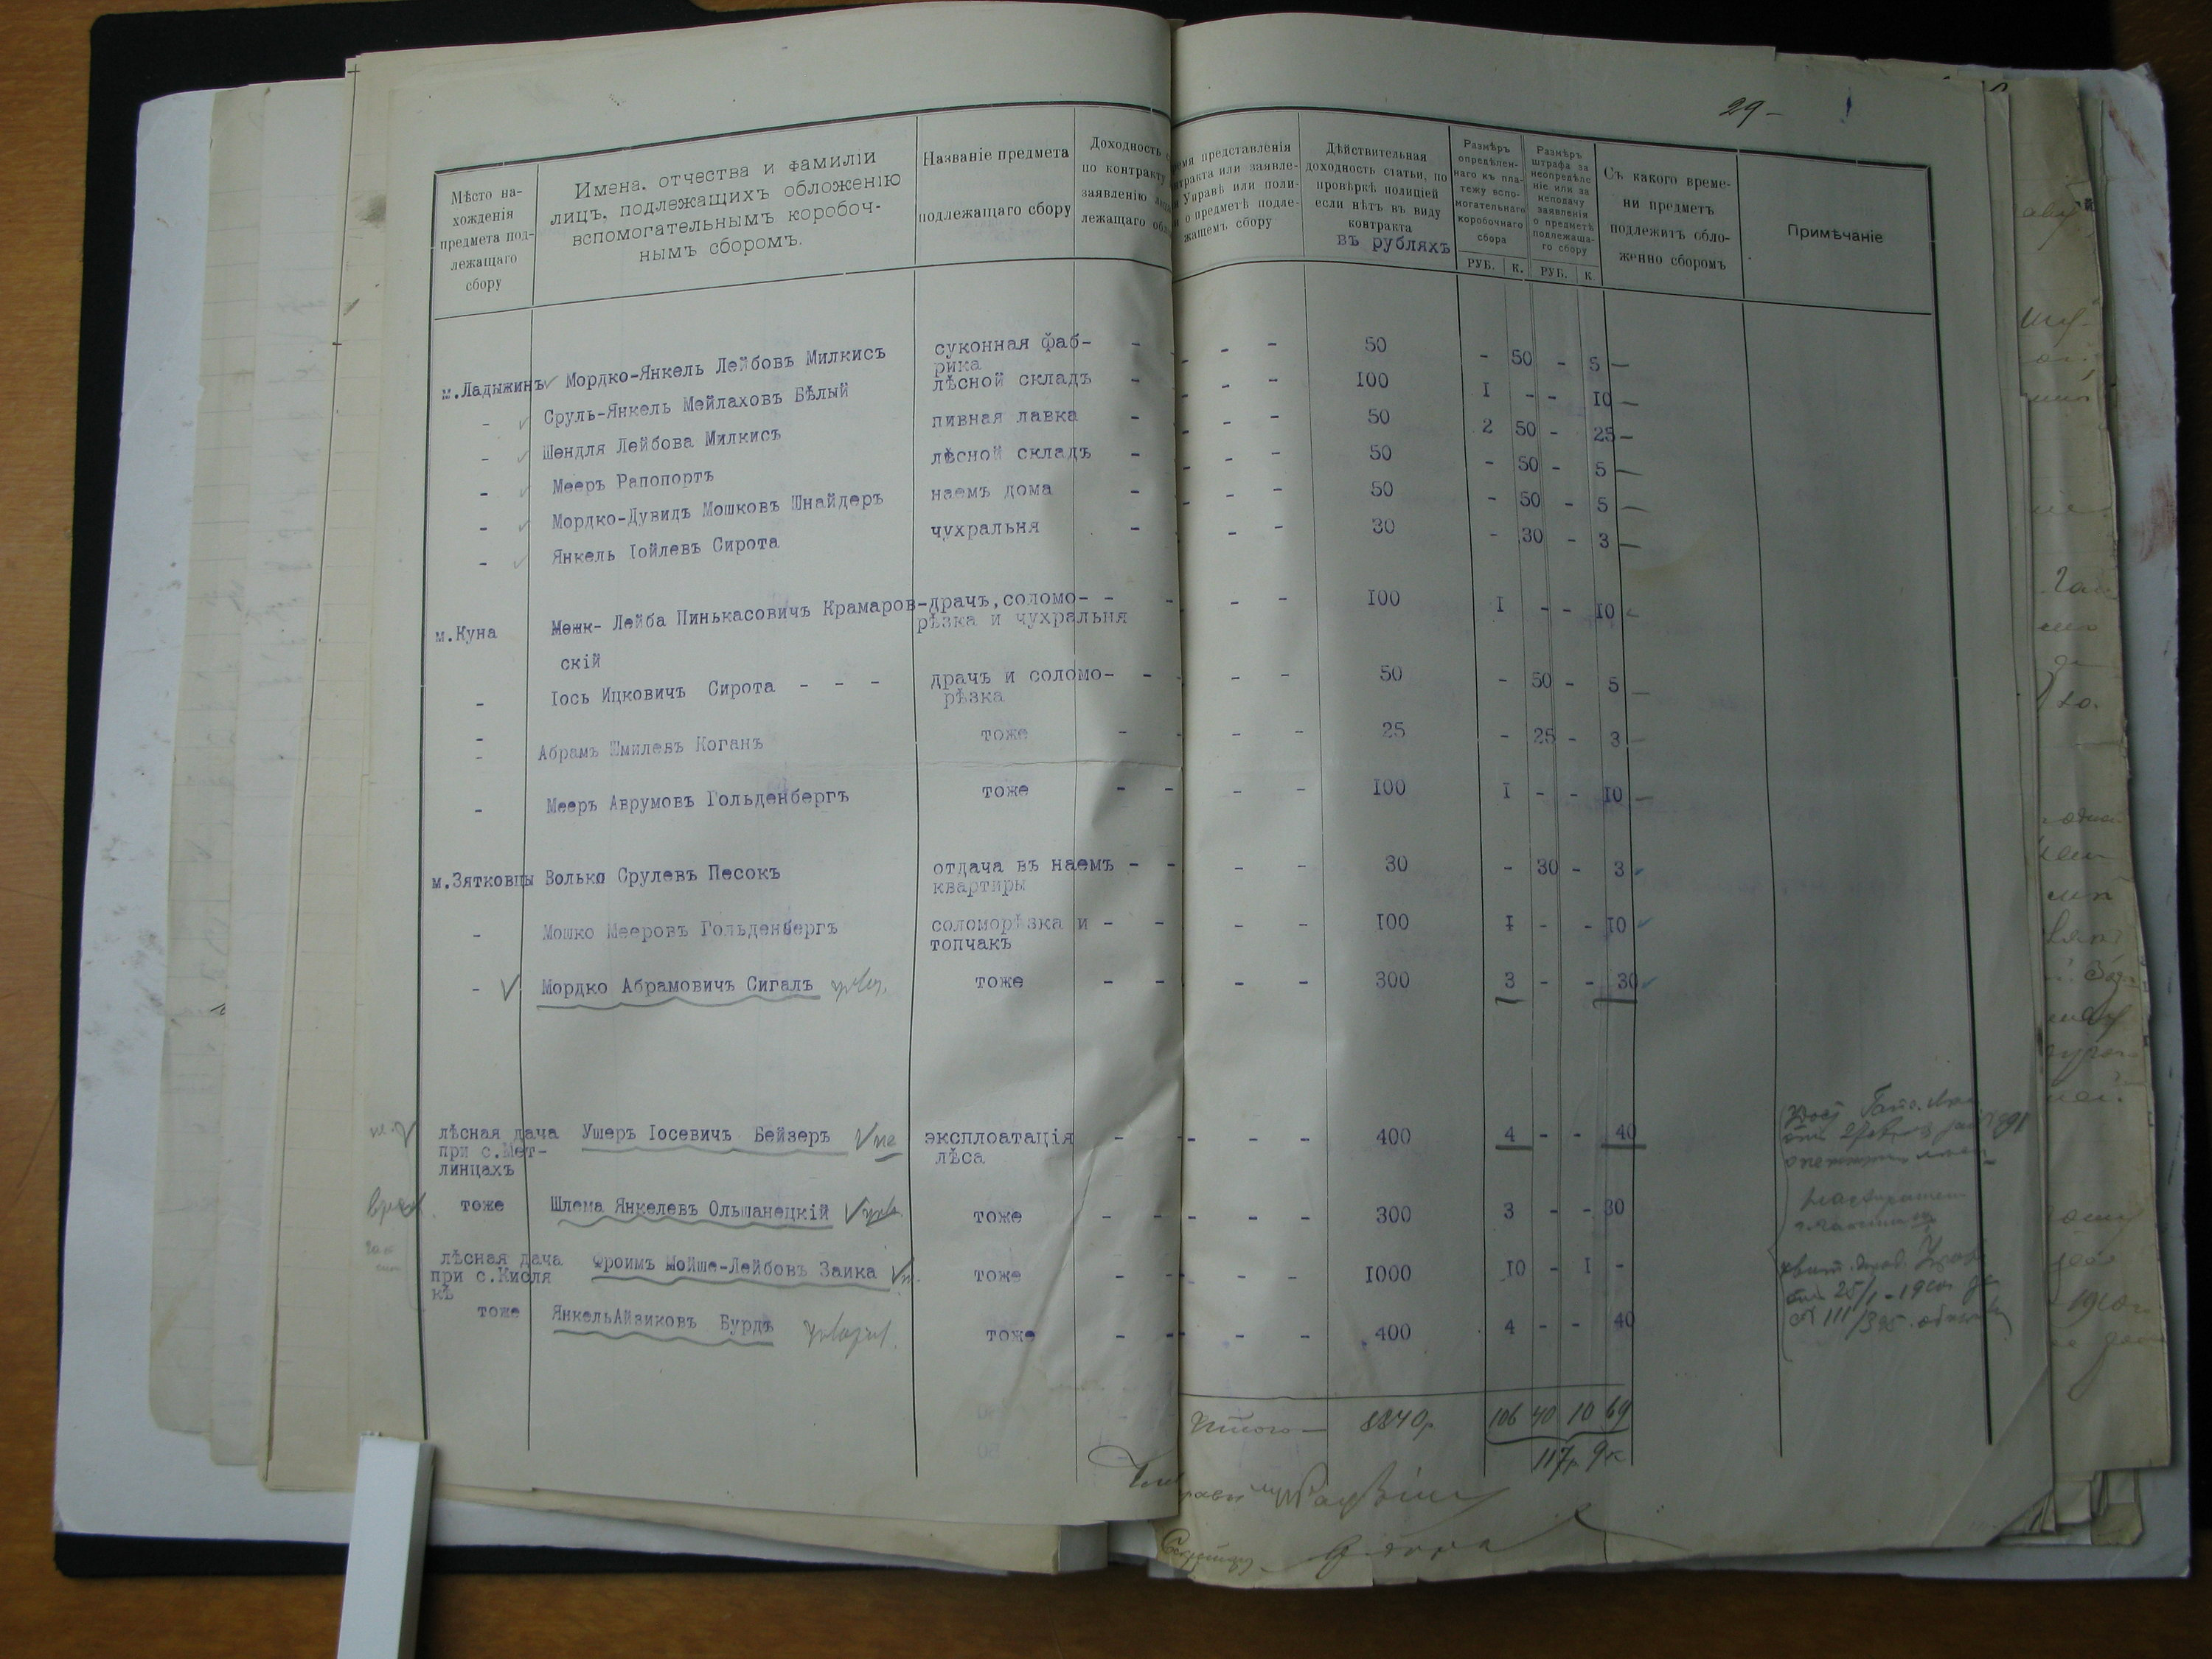 29-
Мѣсто на-
хожденія
предмета под-
лежащаго
сбору
Имена, отчества и фамиліи
лицъ, подлежащихъ обложенію
вспомогательнымъ короboч-
нымъ сборомъ.
Названіе предмета
подлежащаго сбору
Доходность
по контракту
заявленію
лежащаго
представленія
или заявле-
Управѣ или поли-
о предметѣ подле-
жащемъ сбору
Дѣйствительная
доходность статьи, по
провѣркѣ полиціей
если нѣтъ въ виду
контракта
въ рубляхъ
Размѣръ
опредѣлен-
наго къ пла-
тежу вспо-
могательнаго
коробочнаго
сбора
РУБ. К.
Размѣръ
штрафа за
неопредѣле
ніе или за
неподачу
заявленія
о предметѣ
подлежаща-
го сбору
РУБ. К.
Съ какого време-
ни предметъ
подлежитъ обло-
женію сборомъ
Примѣчаніе
м.Ладыжинъ Мордко-Янкель Лейбовъ Милкисъ суконная фаб-рика - - - 50 - 50 - 5
- Сруль-Янкель Мейлаховъ Бѣлый лѣсной складъ - - - 100 I - - 10
- Шендля Лейбова Милкисъ пивная лавка - - - 50 2 50 - 25
- Мееръ Рапопортъ лѣсной складъ - - - 50 - 50 - 5
- Мордко-Дувидъ Мошковъ Шнайдеръ наемъ дома - - - 50 - 50 - 5
- Янкель Іойлевъ Сирота чухральня - - - 30 - 30 - 3
м.Куна Лейба Пинькасовичъ Крамаров- драчъ,соломо- - - - 100 I - - 10
скій рѣзка и чухральня
- Іось Ицковичъ Сирота - - - драчъ и соломо- - - - 50 - 50 - 5
рѣзка
- Абрамъ Шмилевъ Коганъ тоже - - - 25 - 25 - 3
- Мееръ Аврумовъ Гольденбергъ тоже - - - 100 I - - 10
м.Зятковцы Волько Срулевъ Песокъ отдача въ наемъ - - - 30 - 30 - 3
квартиры
- Мошко Мееровъ Гольденбергъ соломорѣзка и - - - 100 I - - 10
топчакъ
- Мордко Абрамовичъ Сигалъ тоже - - - 300 3 - - 30
лѣсная дача Ушеръ Іосевичъ Бейзеръ эксплоатація - - - 400 4 - - 40
при с.Мет- лѣса
линцахъ
тоже Шлема Янкелевъ Ольшанецкій тоже - - - 300 3 - - 30
лѣсная дача Фроимъ Мойше-Лейбовъ Заика тоже - - - 1000 10 - I -
при с.Кисля
кѣ
тоже ЯнкельАйзиковъ Бурдъ тоже - - - 400 4 - - 40
Итого — 8840р 106 40 10 69
117р 9к